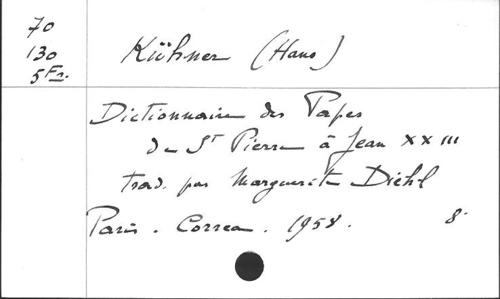 70
130
5 Fr.
Kühner (Hans)
Dictionnaire des Papes
de St Pierre à Jean XXIII
trad. par Marguerite Diehl
Paris. Correa. 1958. 8.